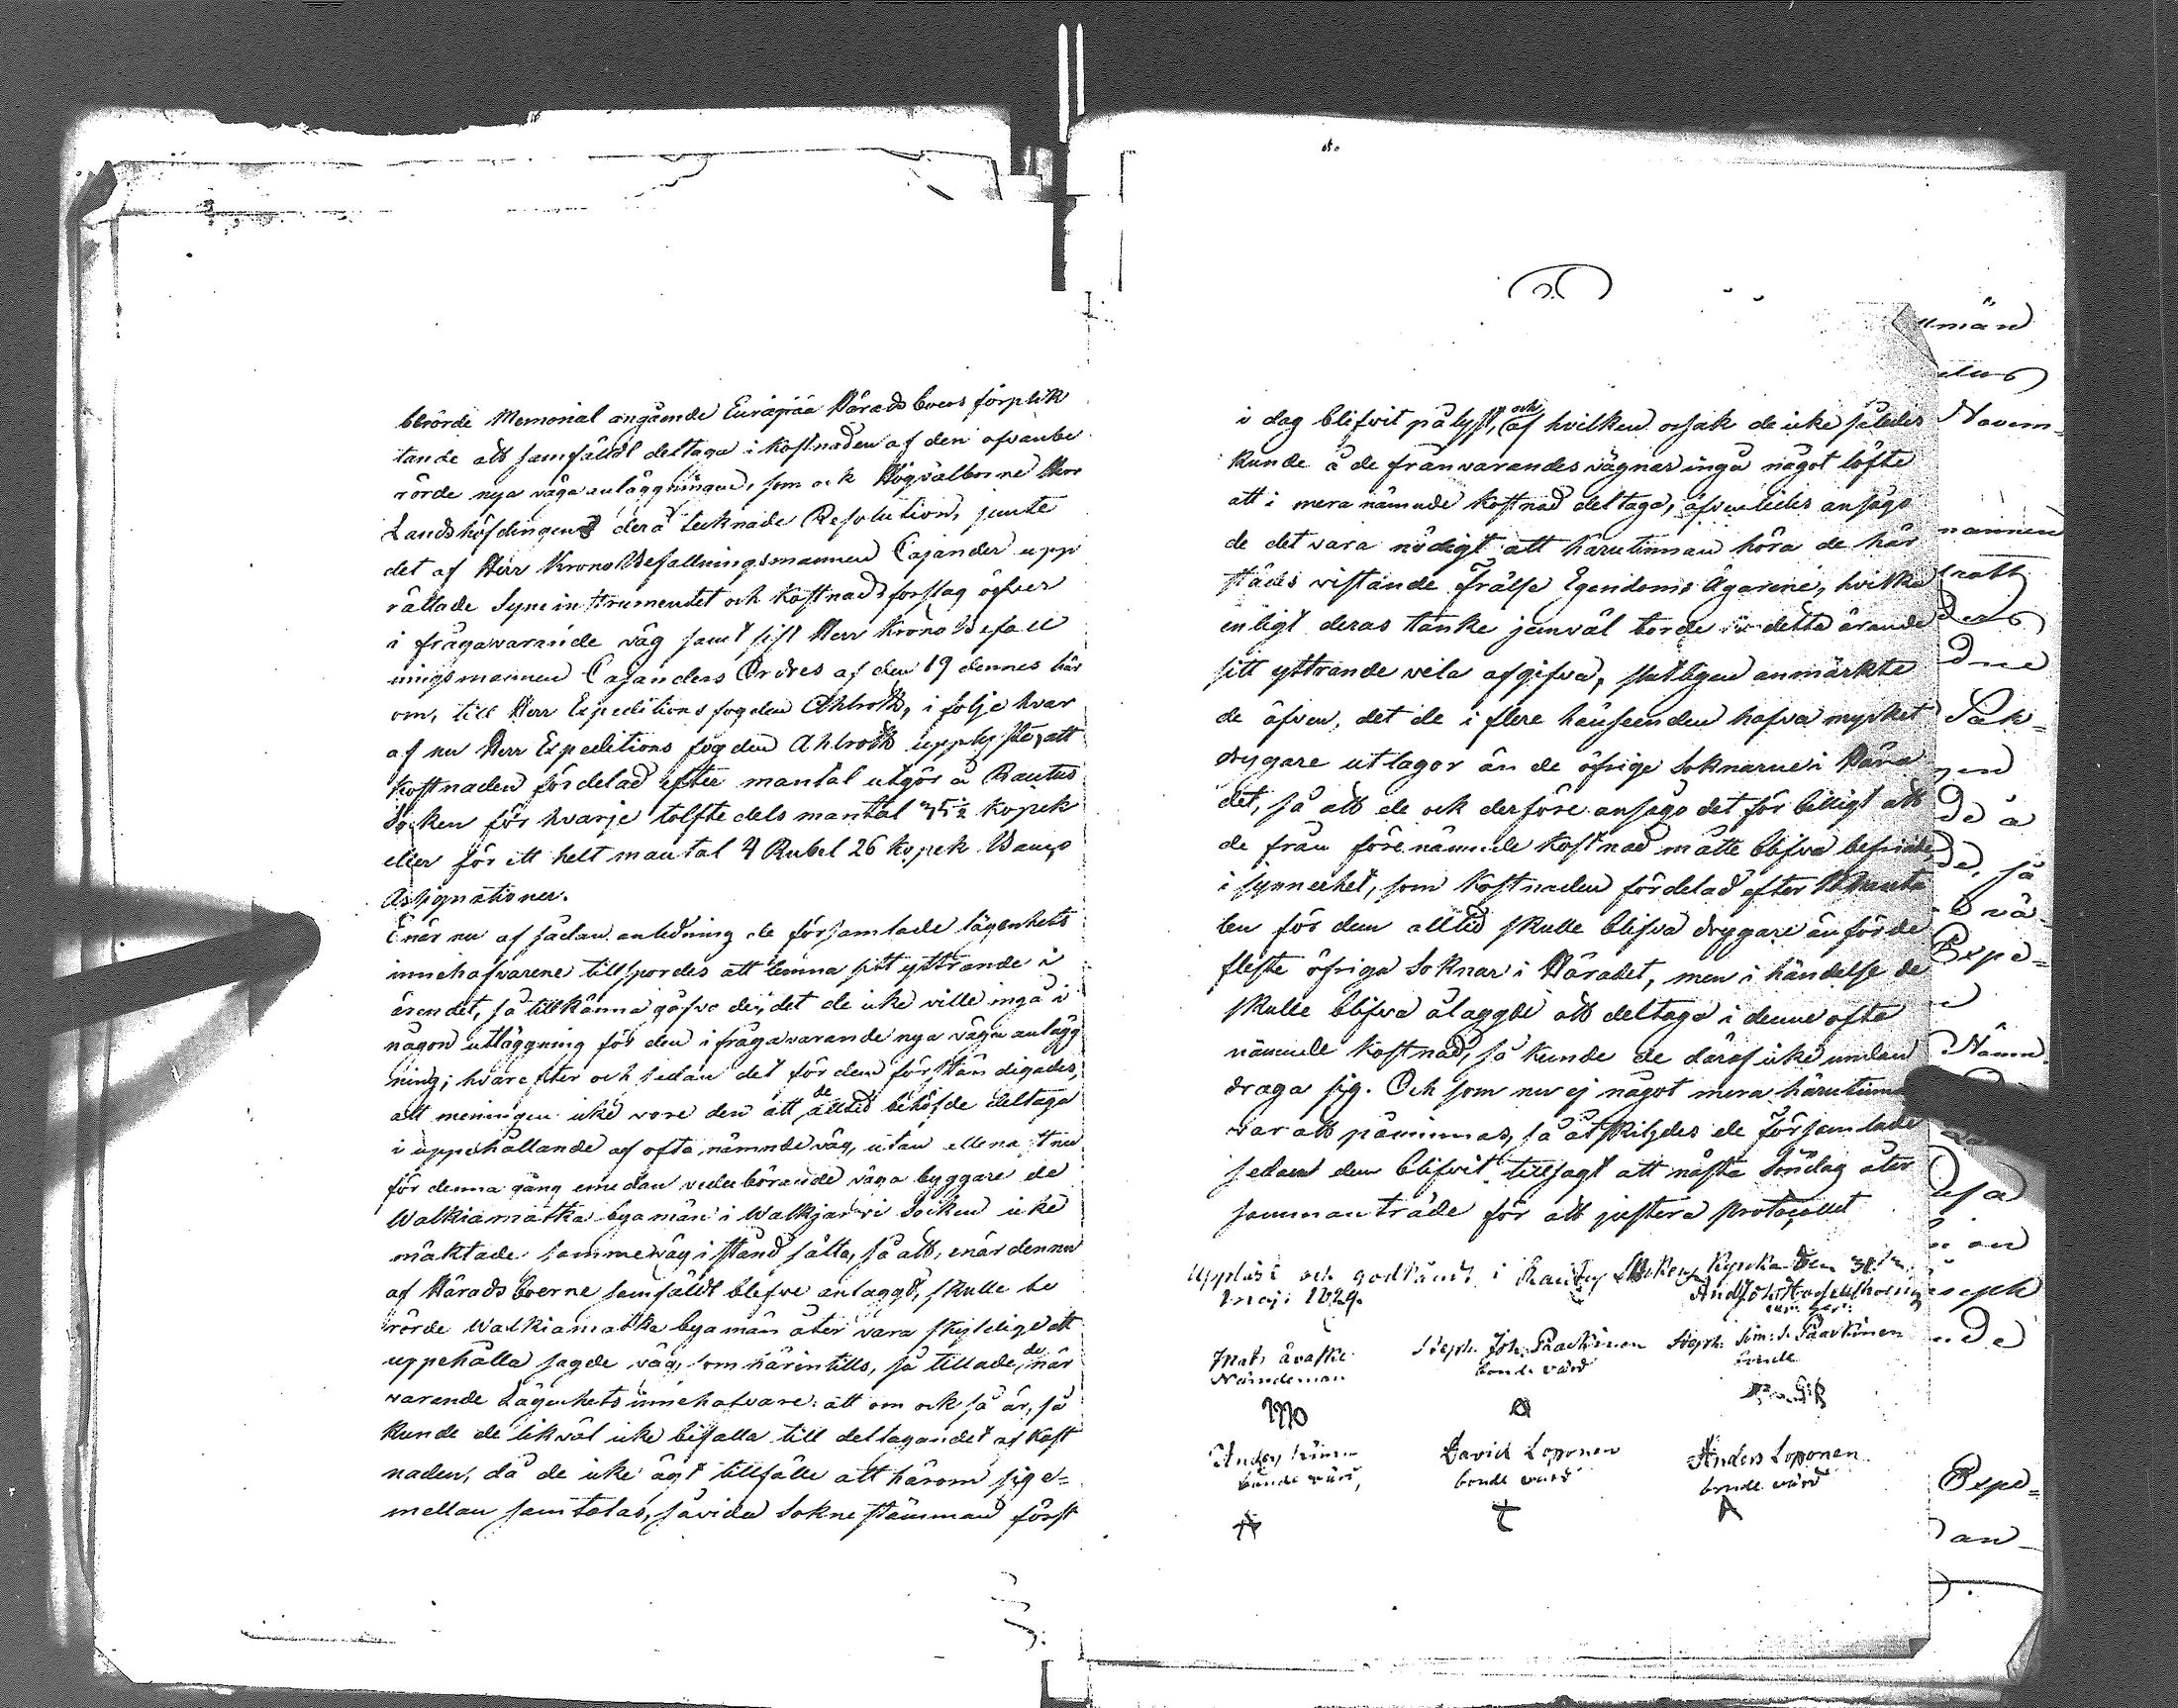 berörde Memorial angående Euräpää Härads boers förplik
tande att samfäldt deltaga i kostnaden af den ofvanbe
rörde nya väga anläggningen, som ock Högvälborne Herr
Landshöfdingens derå tecknade Resolution, jemte
det af Herr Krono Befallningsmannen Cajander upp
rättade Syne instrumentet och kostnads forslag öfver
i frågavarande väg samt sist Herr Krono Befall
ningsmannen Cajanders Ordres af den 19 dennes här
om, till Herr Expeditions fogden Ahlroth, i följe hvar
af nu Herr Expeditions fogden Ahlroth upplyste, att
kostnaden fördelad efter mantal utgör å Rautus
Socken för hvarje tolftedels mantal 35½ kopek
eller för ett helt mantal 4 Rubel 26 kopek Banco
Assignationer.
Enär nu af sådan anledning de församlade lägenhets
innehafvarene tillspordes att lemna sitt yttrande i
ärendet, så tillkänna gåfvo de, det de icke ville ingå i
någon utläggning för den i frågavarande nya vägens anlägg
ning; hvarefter och sedan det för dem förständigades,
att meningen icke vore den att de alltid behöfde deltaga
i uppehållande af ofta nämnde väg, utan allenast nu
för denna gång emedan vederbörande väga byggare de
Walkiamatka byamän i Walkjarvi Socken icke
mäktade samma väg i stånd sätta, så att, enär denna
af Härads boerne samfäldt blefve anlaggd, skulle be
rörde Walkiamatka byamän åter vara skyldige att
uppehålla sagde väg, som härintills, så tillade de när
warande Lägenhets innehafvare: att om ock så är, så
kunde de likväl icke bifalla till deltagandet af kost
naden, då de icke ägt tillfälle att härom sig e=
mellan samtalas, såvida Sokne stämman först
i dag blifvit pålyst, och af hvilken orsak de icke således
kunde å de frånvarandes vägnar ingå något löfte
att i mera nämnde kostnad deltaga, äfvenledes ansågo
de det vara nödigt att härutinnan höra de här
städes vistande Frälse Egendoms Ägarene, hvilka
enligt deras tanke jemväl torde i detta ärende
sitt yttrande vela afgifva, slutligen anmärkte
de äfven, det de i flere hänseenden hafva mycket
drygare utlagor än de öfrige Soknarne i Hära
det, så att de ock derföre ansågo det för billigt att
de från förenämnde kostnad måtte blifva befriade,
i synnerhet, som kostnaden fördelad efter
len för dem alltid skulle blifva drygare än för de
fleste öfriga Soknar i Häradet, men i händelse de
skulle blifva ålaggde att deltaga i denne ofta
nämnde kostnad, så kunde de däraf icke undan
draga sig. Och som nu ej något mera härutinnan
var att påminnas, så åtskildes de Församlade
sedan dem blifvit tillsagt att nästa Söndag åter
sammanträde för att justera protocollet
Uppläst och godkändt i Rautus Sockens Kyrka den 31
Maj 1829.
Mats
Nämndeman
Steph. Joh. Paackinen
bonde värd
Steph. Sim: S. Paackinen
bonde
Anders
bonde värd,
David Loponen
bonde värd
Anders Loponen
bonde värd
Novem-
Sak=
så
Expe=
Nämn
Expe=